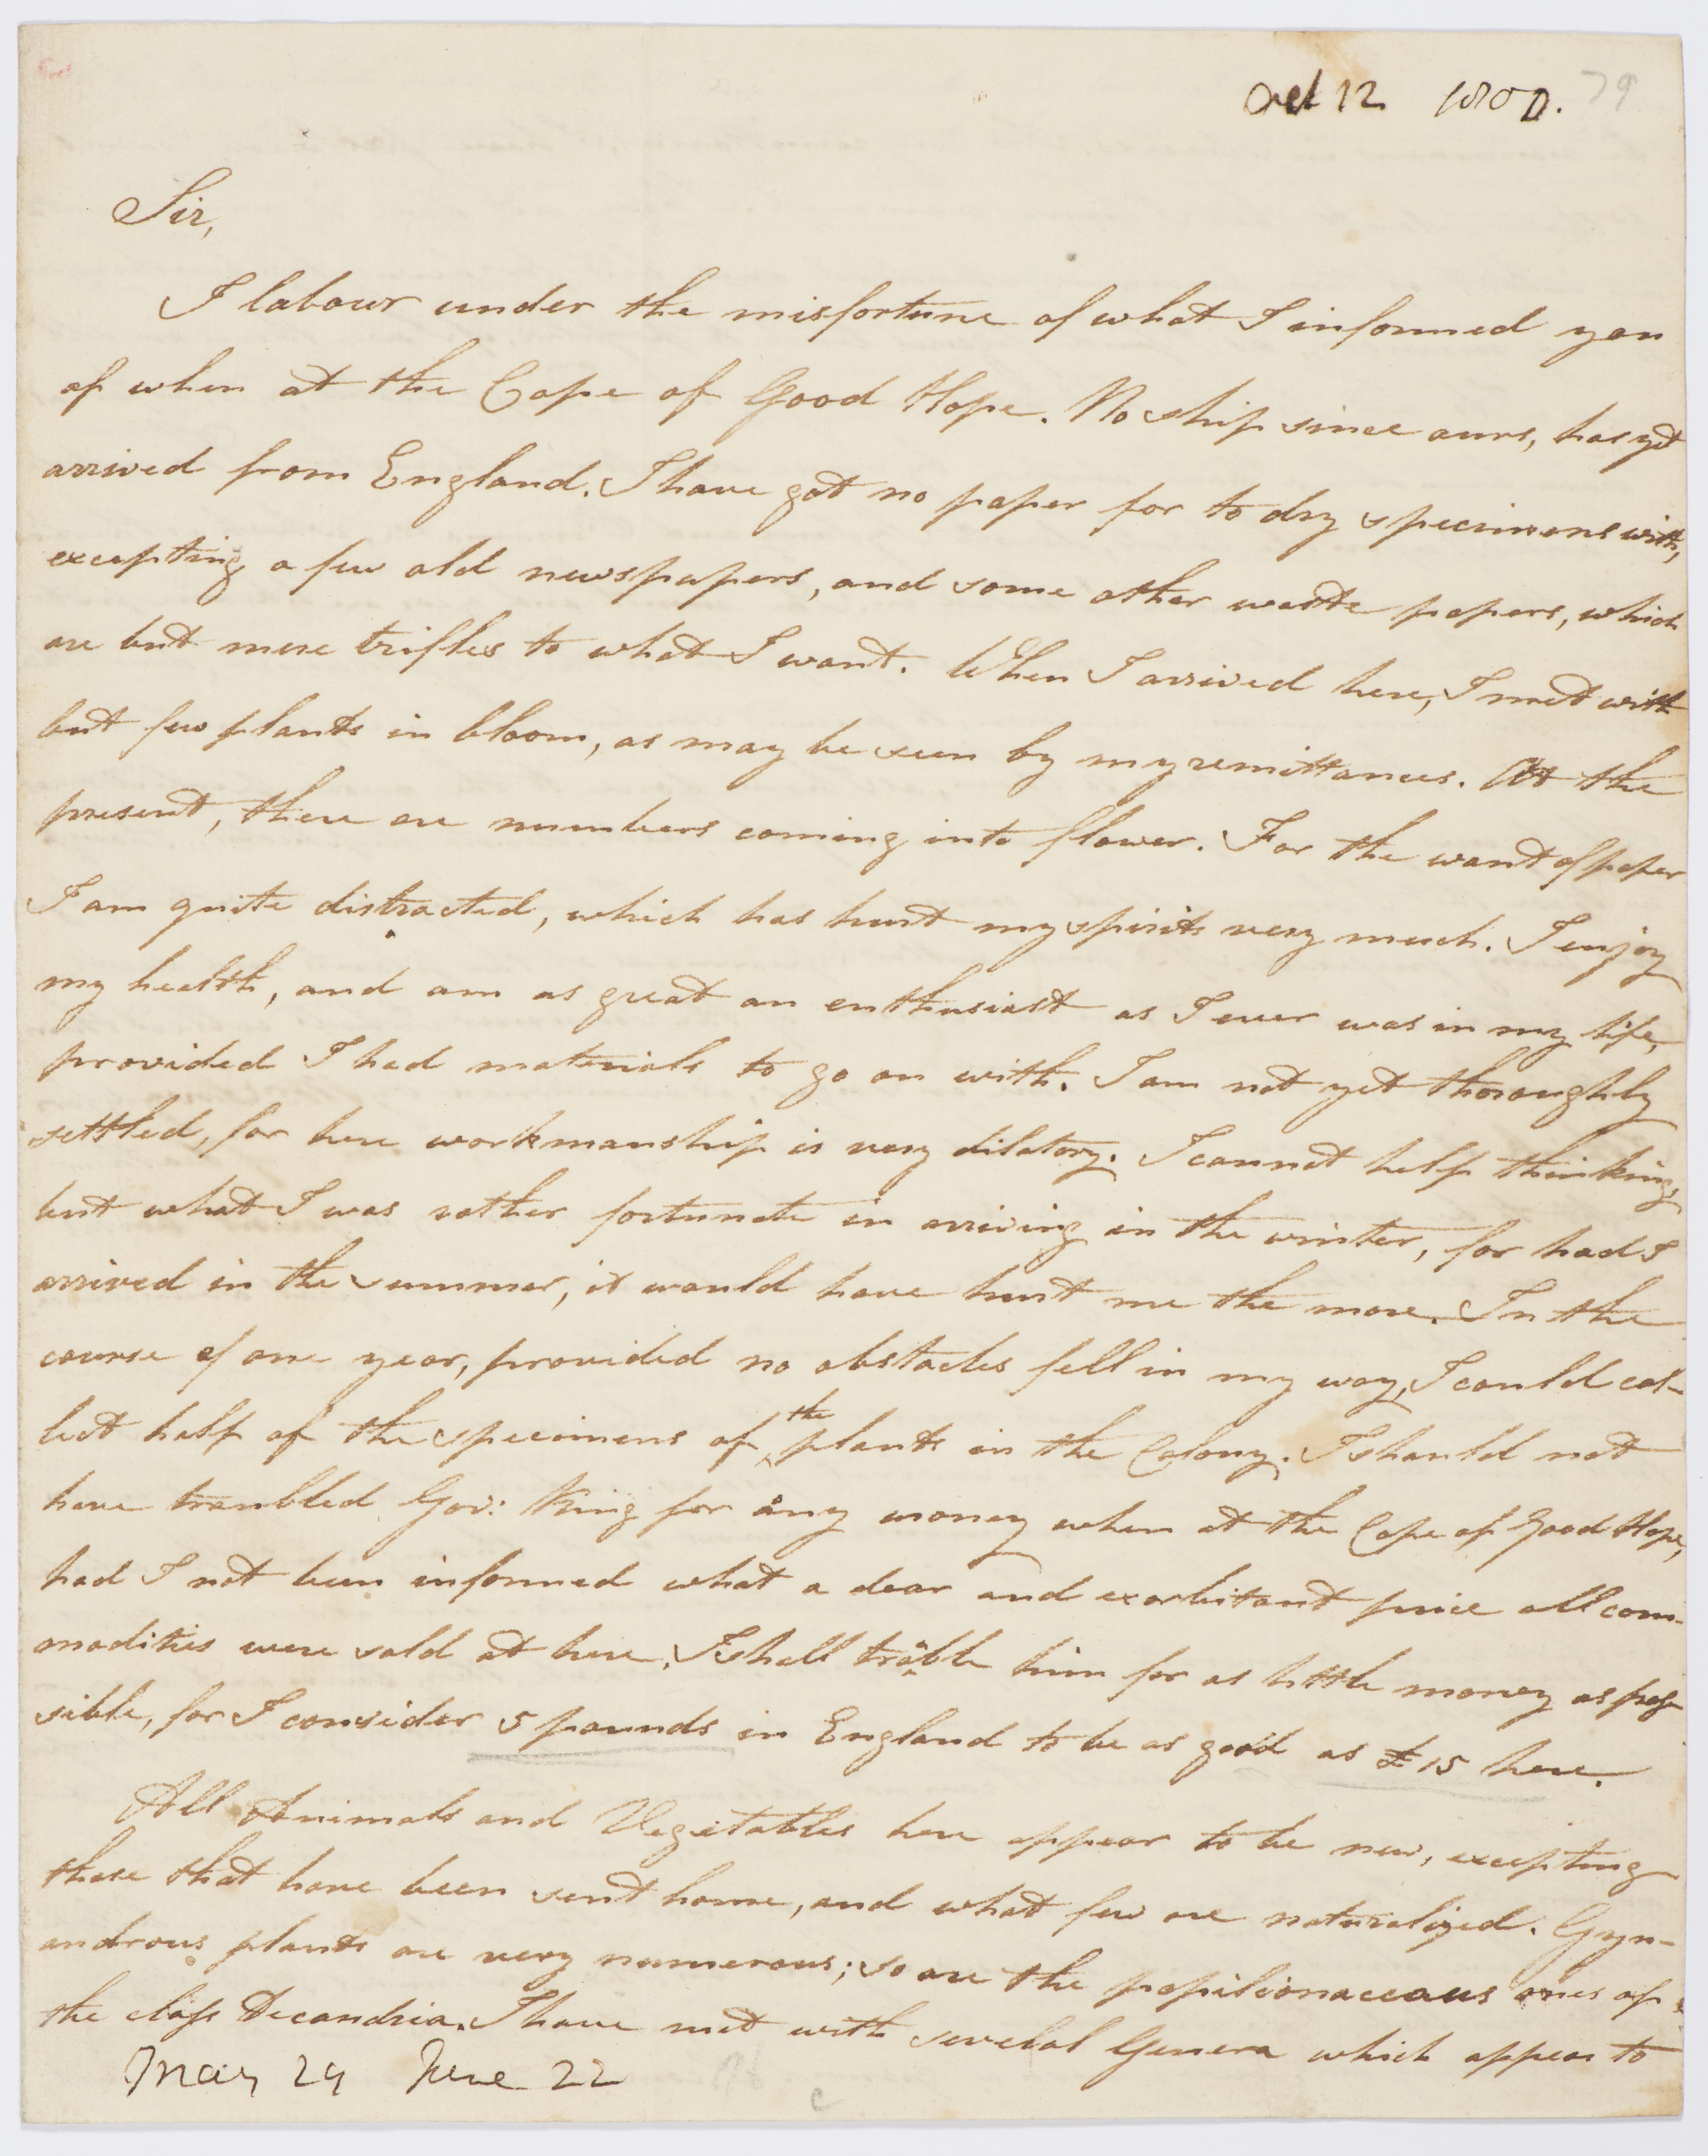 Oct 12 1800.
79
Sir,
I labour under the misfortune of what I informed you
of when at the Cape of Good Hope. No ship since ours, has yet
arrived from England. I have got no paper for to dry specimens with,
excepting a few old newspapers, and some other waste papers, which
are but mere trifles to what I want. When I arrived here, I met with
but few plants in bloom, as may be seen by my remittances. At the
present, there are numbers coming into flower. For the want of paper
I am quite distracted, which has hurt my spirits very much. I enjoy
my health, and am as great an enthusiast as I ever was in my life,
provided I had materials to go on with. I am not yet thoroughly
settled, for here workmanship is very dilatory. I cannot help thinking,
but what I was rather fortunate in arriving in the winter, for had I
arrived in the summer, it would have hurt me the more. In the
course of one year, provided no obstacles fell in my way, I could col-
lect half of the specimens of the plants in the Colony. I should not
have troubled Gov: King for any money when at the Cape of Good Hope,
had I not been informed what a dear and exorbitant price all com-
modities were sold at here. I shall trouble him for as little money as pos-
sible, for I consider 5 pounds in England to be as good as £15 here.
All Animals and Vegitables here appear to be new, excepting
those that have been sent home, and what few are naturalized. Gyn-
androus plants are very numerous; so are the papilionaceous ones of
the class Decandria. I have met with several Genera which appear to
May 29 June 22